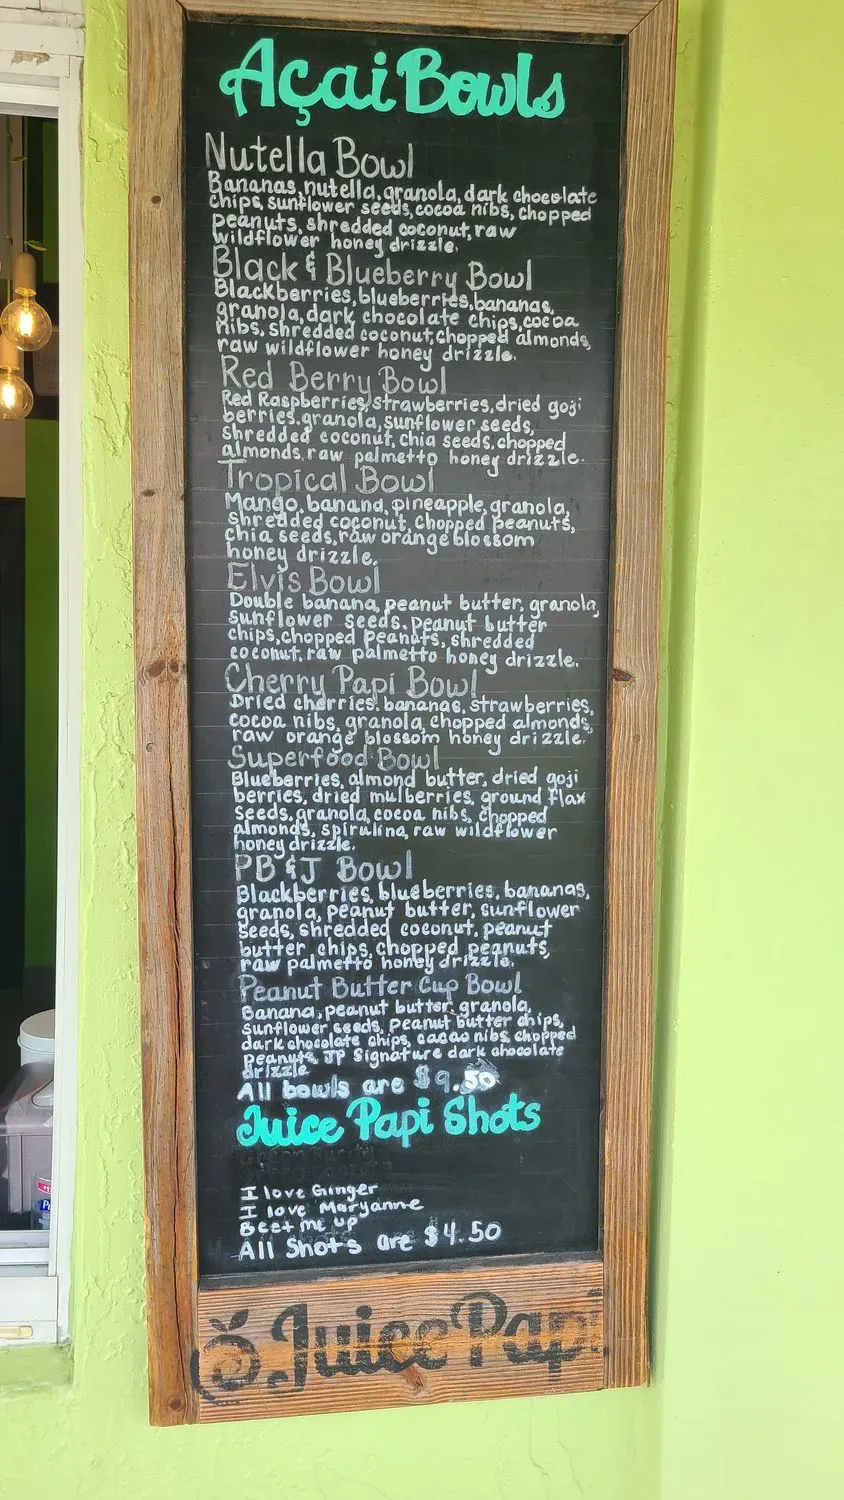 Açai Bowls
Nutella Bowl
Bananas, nutella, granola, dark chocolate
chips, sunflower seeds, cocoa nibs, chopped
peanuts, shredded coconut, raw
wildflower honey drizzle.
Black & Blueberry Bowl
Blackberries, blueberries, bananas,
granola, dark chocolate chips, cocoa
nibs, shredded coconut, chopped almonds,
raw wildflower honey drizzle.
Red Berry Bowl
Red Raspberries, strawberries, dried goji
berries, granola, sunflower seeds,
shredded coconut, chia seeds, chopped
almonds, raw palmetto honey drizzle.
Tropical Bowl
Mango, banana, pineapple, granola,
shredded coconut, chopped peanuts,
chia seeds, raw orange blossom
honey drizzle.
Elvis Bowl
Double banana, peanut butter, granola,
sunflower seeds, peanut butter
chips, chopped peanuts, shredded
coconut, raw palmetto honey drizzle.
Cherry Papi Bowl
Dried cherries, bananas, strawberries,
cocoa nibs, granola, chopped almonds,
raw orange blossom honey drizzle.
Superfood Bowl
Blueberries, almond butter, dried goji
berries, dried mulberries, ground flax
seeds, granola, cocoa nibs, chopped
almonds, spirulina, raw wildflower
honey drizzle.
PB & J Bowl
Blackberries, blueberries, bananas,
granola, peanut butter, sunflower
seeds, shredded coconut, peanut
butter chips, chopped peanuts,
raw palmetto honey drizzle.
Peanut Butter Cup Bowl
Banana, peanut butter, granola,
sunflower seeds, peanut butter chips,
dark chocolate chips, cacao nibs, chopped
peanuts, JP Signature dark chocolate
drizzle
All bowls are $9.50
Juice Papi Shots
I love Ginger
I love Maryanne
Beet me up
All Shots are $4.50
Juice Papi